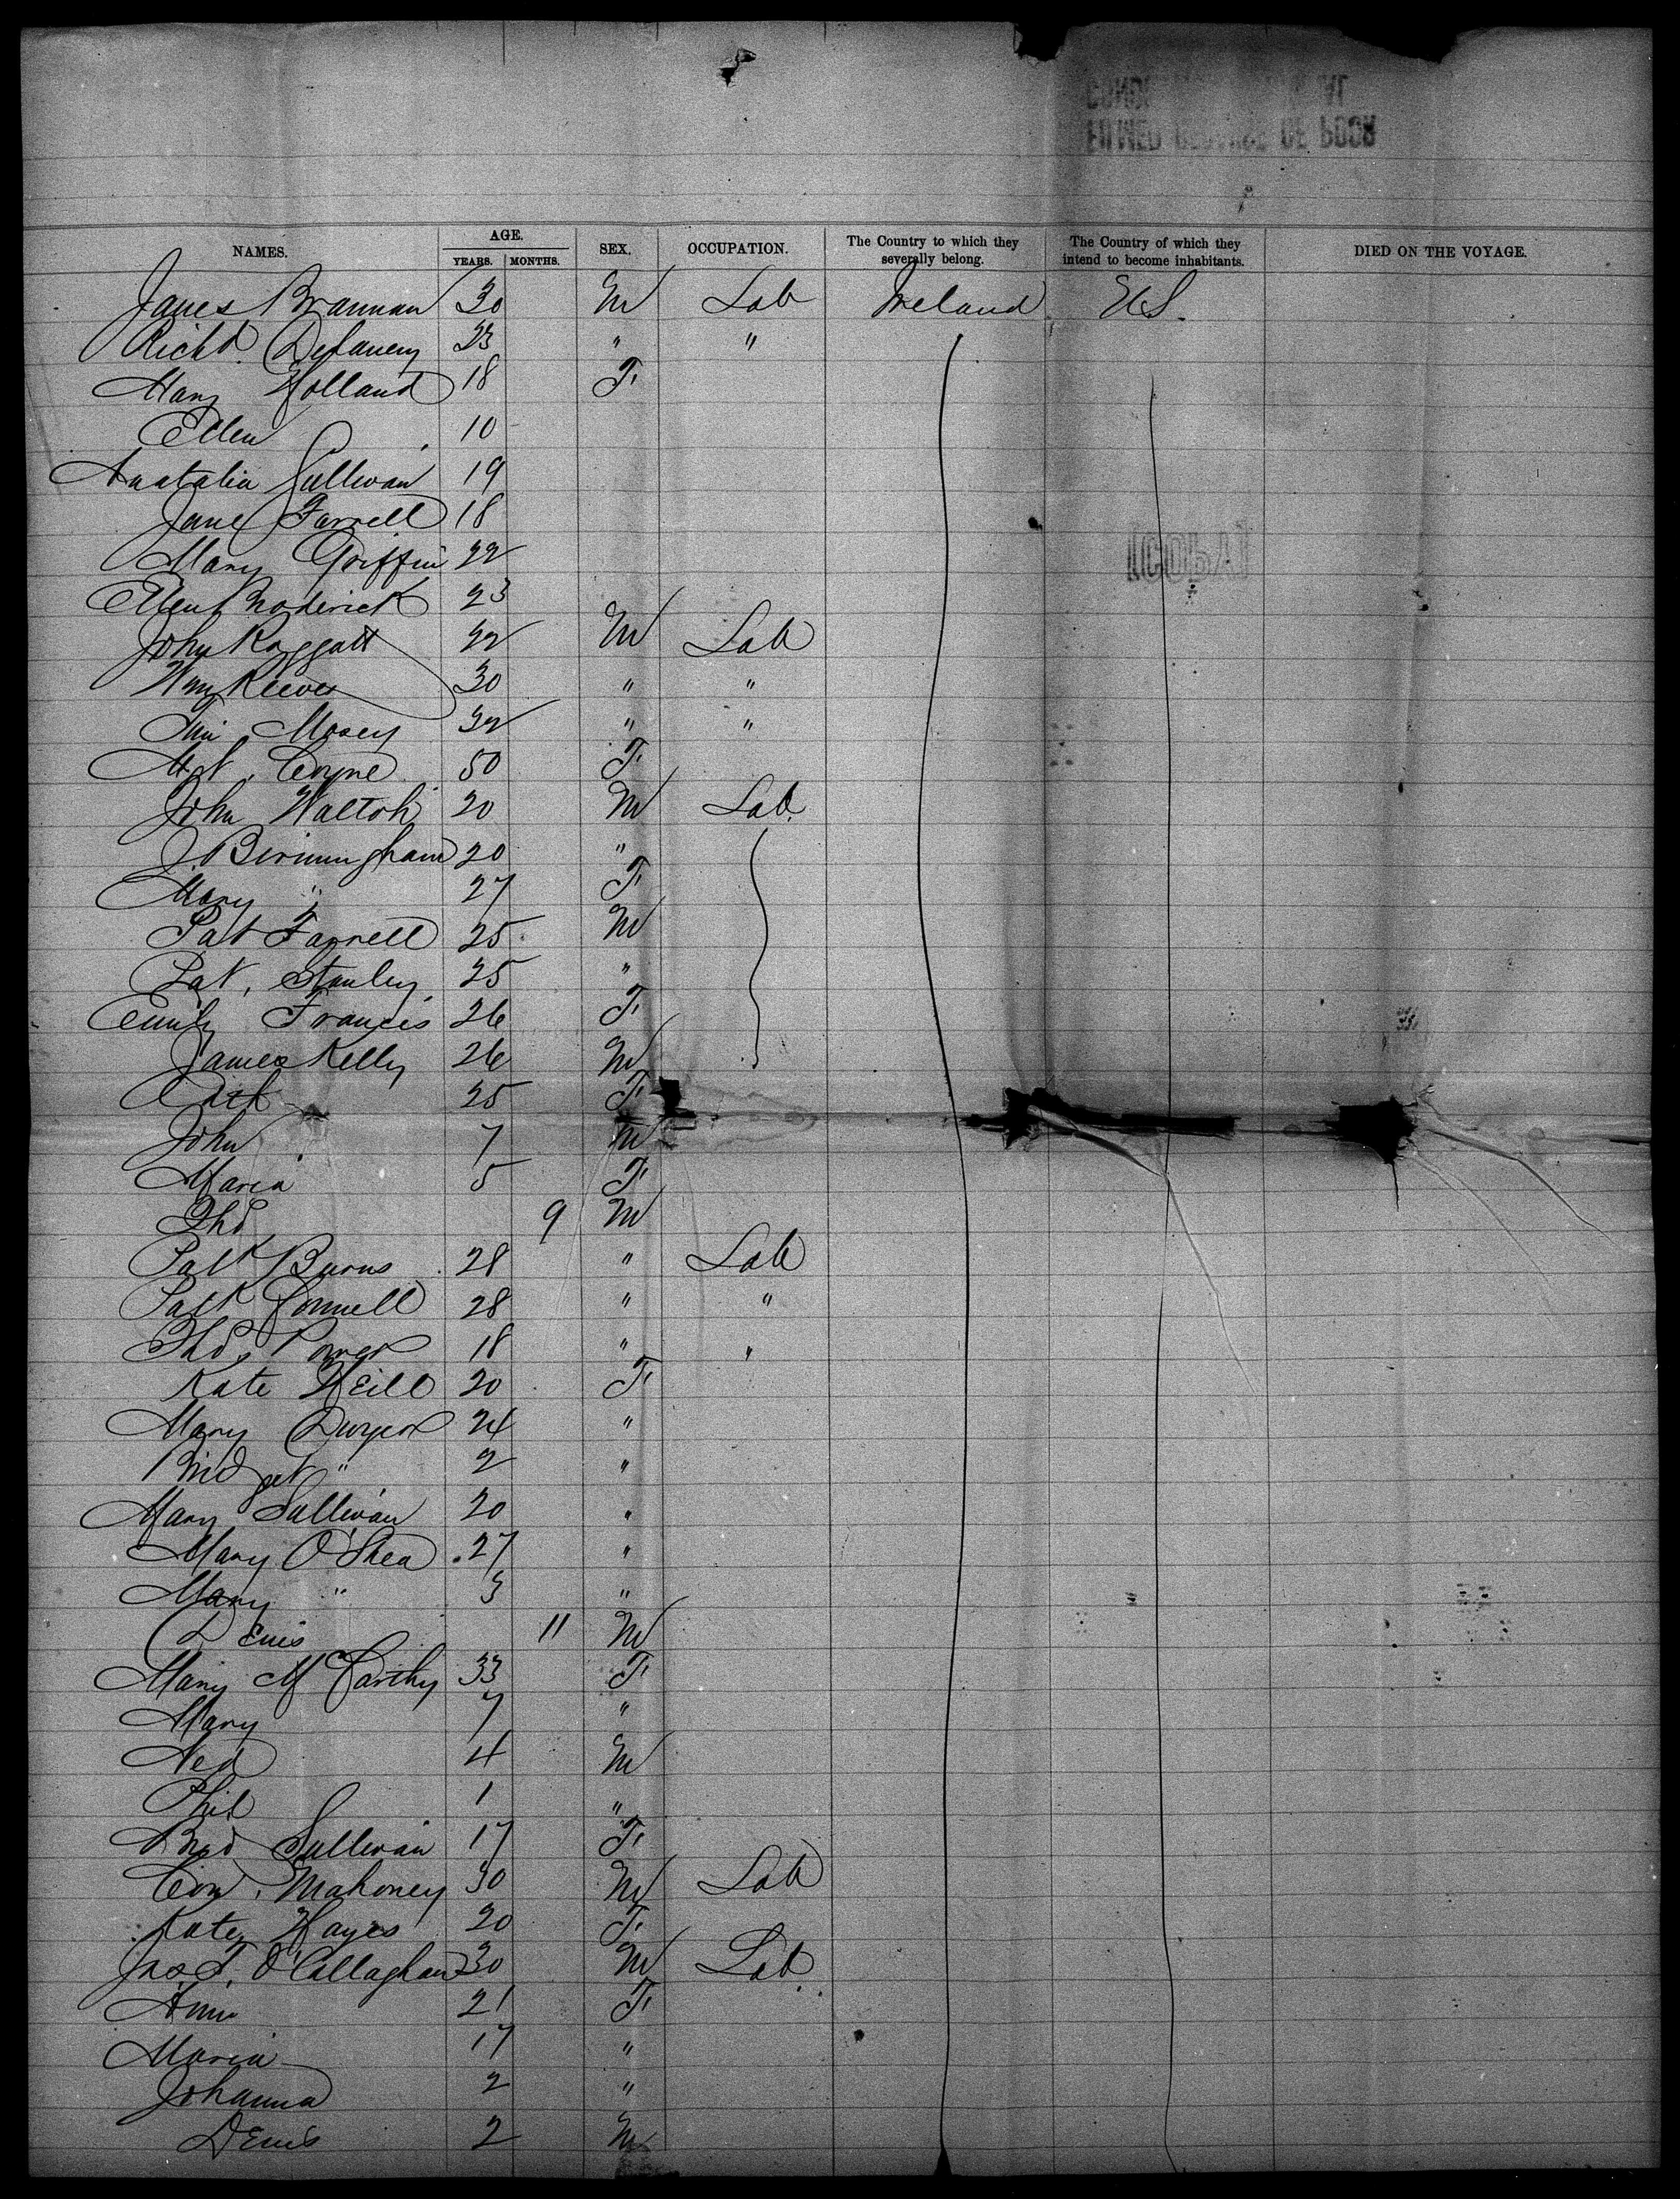 NAMES. AGE. SEX. OCCUPATION. The Country to which they severally belong. The Country of which they intend to become inhabitants. DIED ON THE VOYAGE.
YEARS. MONTHS.
James Brannan 30 M Lab Ireland U.S.
Richd. Delaney 23 " "
Mary Holland 18 F
Ellen 10
Anatalia Sullivan 19
Jane Farrell 18
Mary Griffin 22
Ellen Broderick 23
John Raggatt 22 M Lab
Wm Reeves 30 " "
Tim Maxey 32 " "
Mgt. Coyne 50 F
John Walton 20 M Lab.
J. Birmingham 20 "
Mary " 27 F
Pat Farrell 25 M
Pat. Stanley 25 "
Emily Francis 26 F
James Kelly 26 M
Cath 25 F
John 7 M
Maria 5 F
Thos 9 M
Patk Burns 28 " Lab
Patk Connell 28 " "
Thos Power 18 " "
Kate Neill 20 F
Mary Dwyer 24 "
Bridget " 2 "
Mary Sullivan 20 "
Mary O'Shea 27 "
Mary " 3 "
Denis 11 M
Mary McCarthy 33 F
Mary 7 "
Ned 4 M
Phil 1 "
Brid Sullivan 17 F
Con. Mahoney 30 M Lab
Katey Hayes 20 F
Jas. J. O'Callaghan 30 M Lab.
Annie 21 F
Maria 17 "
Johanna 2 "
Denis 2 M